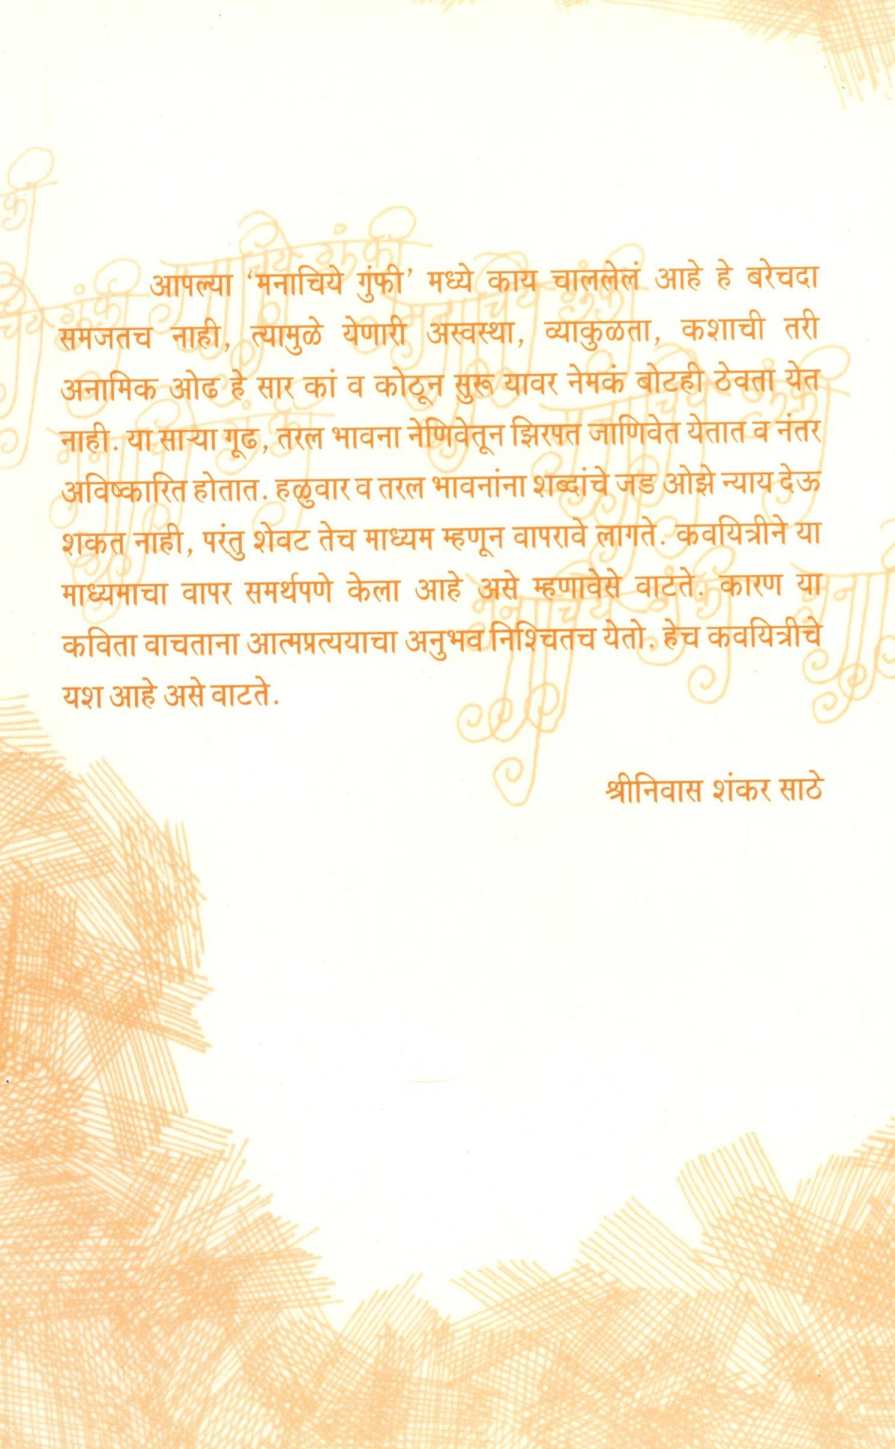 आपल्या ‘मनाचिये गुंफी’ मध्ये काय चाललेलं आहे हे बरेचदा
समजतच नाही, त्यामुळे येणारी अस्वस्था, व्याकुळता, कशाची तरी
अनामिक ओढ हे सार कां व कोठून सुरू यावर नेमकं बोटही ठेवता येत
नाही. या साऱ्या गूढ, तरल भावना नेणिवेतून झिरपत जाणिवेत येतात व नंतर
अविष्कारित होतात. हळुवार व तरल भावनांना शब्दांचे जड ओझे न्याय देऊ
शकत नाही, परंतु शेवट तेच माध्यम म्हणून वापरावे लागते. कवयित्रीने या
माध्यमाचा वापर समर्थपणे केला आहे असे म्हणावेसे वाटते. कारण या
कविता वाचताना आत्मप्रत्ययाचा अनुभव निश्चितच येतो. हेच कवयित्रीचे
यश आहे असे वाटते.
श्रीनिवास शंकर साठे